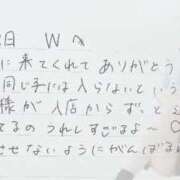 日 Wへ
に来てくれてありがとう
同じ子には入らないという
様が入店からずっと
てるのうれしすぎるよ〜
させないようにがんばる